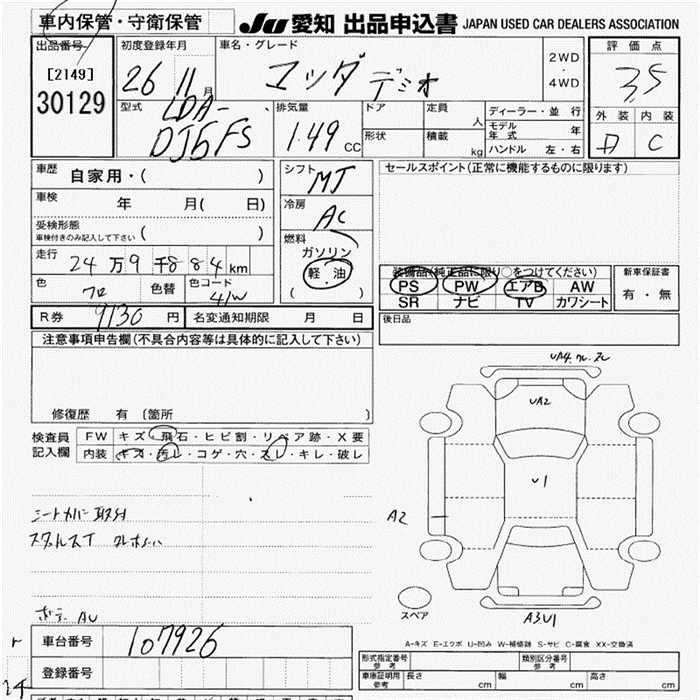 車内保管・守衛保管
JU 愛知 出品申込書 JAPAN USED CAR DEALERS ASSOCIATION
出品番号
[2149]
30129
初度登録年月
26 11 月
車名・グレード
マツダ デミオ
2WD
・
4WD
評価点
3.5
外装 内装
C
型式
LDA-
DJ5FS
排気量
1.49 CC
ドア
定員 人
形状
積載 kg
ディーラー・並行
モデル年式 年
ハンドル 左・右
車歴
自家用・( )
車検
年 月( 日)
受検形態
車検付きのみ記入して下さい ( )
走行
24万9千884km
色
色替
色コード
41W
シフト
MT
冷房
AC
燃料
ガソリン
軽・油
( )
セールスポイント(正常に機能するものに限ります)
装備品(純正品に限り○をつけてください)
PS PW エアB AW
SR ナビ TV カワシート
新車保証書
有・無
R券 9130 円
名変通知期限 月 日
後日品
注意事項申告欄(不具合内容等は具体的に記入して下さい)
修復歴 有 〔箇所
検査員
記入欄
FW キズ・飛石・ヒビ割・リペア跡・X要
内装 キズ・汚レ・コゲ・穴・スレ・キレ・破レ
UA2
U1
A2
A3U1
スペア
シートカバー取付
AU
車台番号 107926
登録番号
A-キズ E-エクボ U-凹み W-補修跡 S-サビ C-腐食 XX-交換済
形式指定番号
参考
類別区分番号
参考
車庫証明用
参考
長さ cm 幅 cm 高さ cm